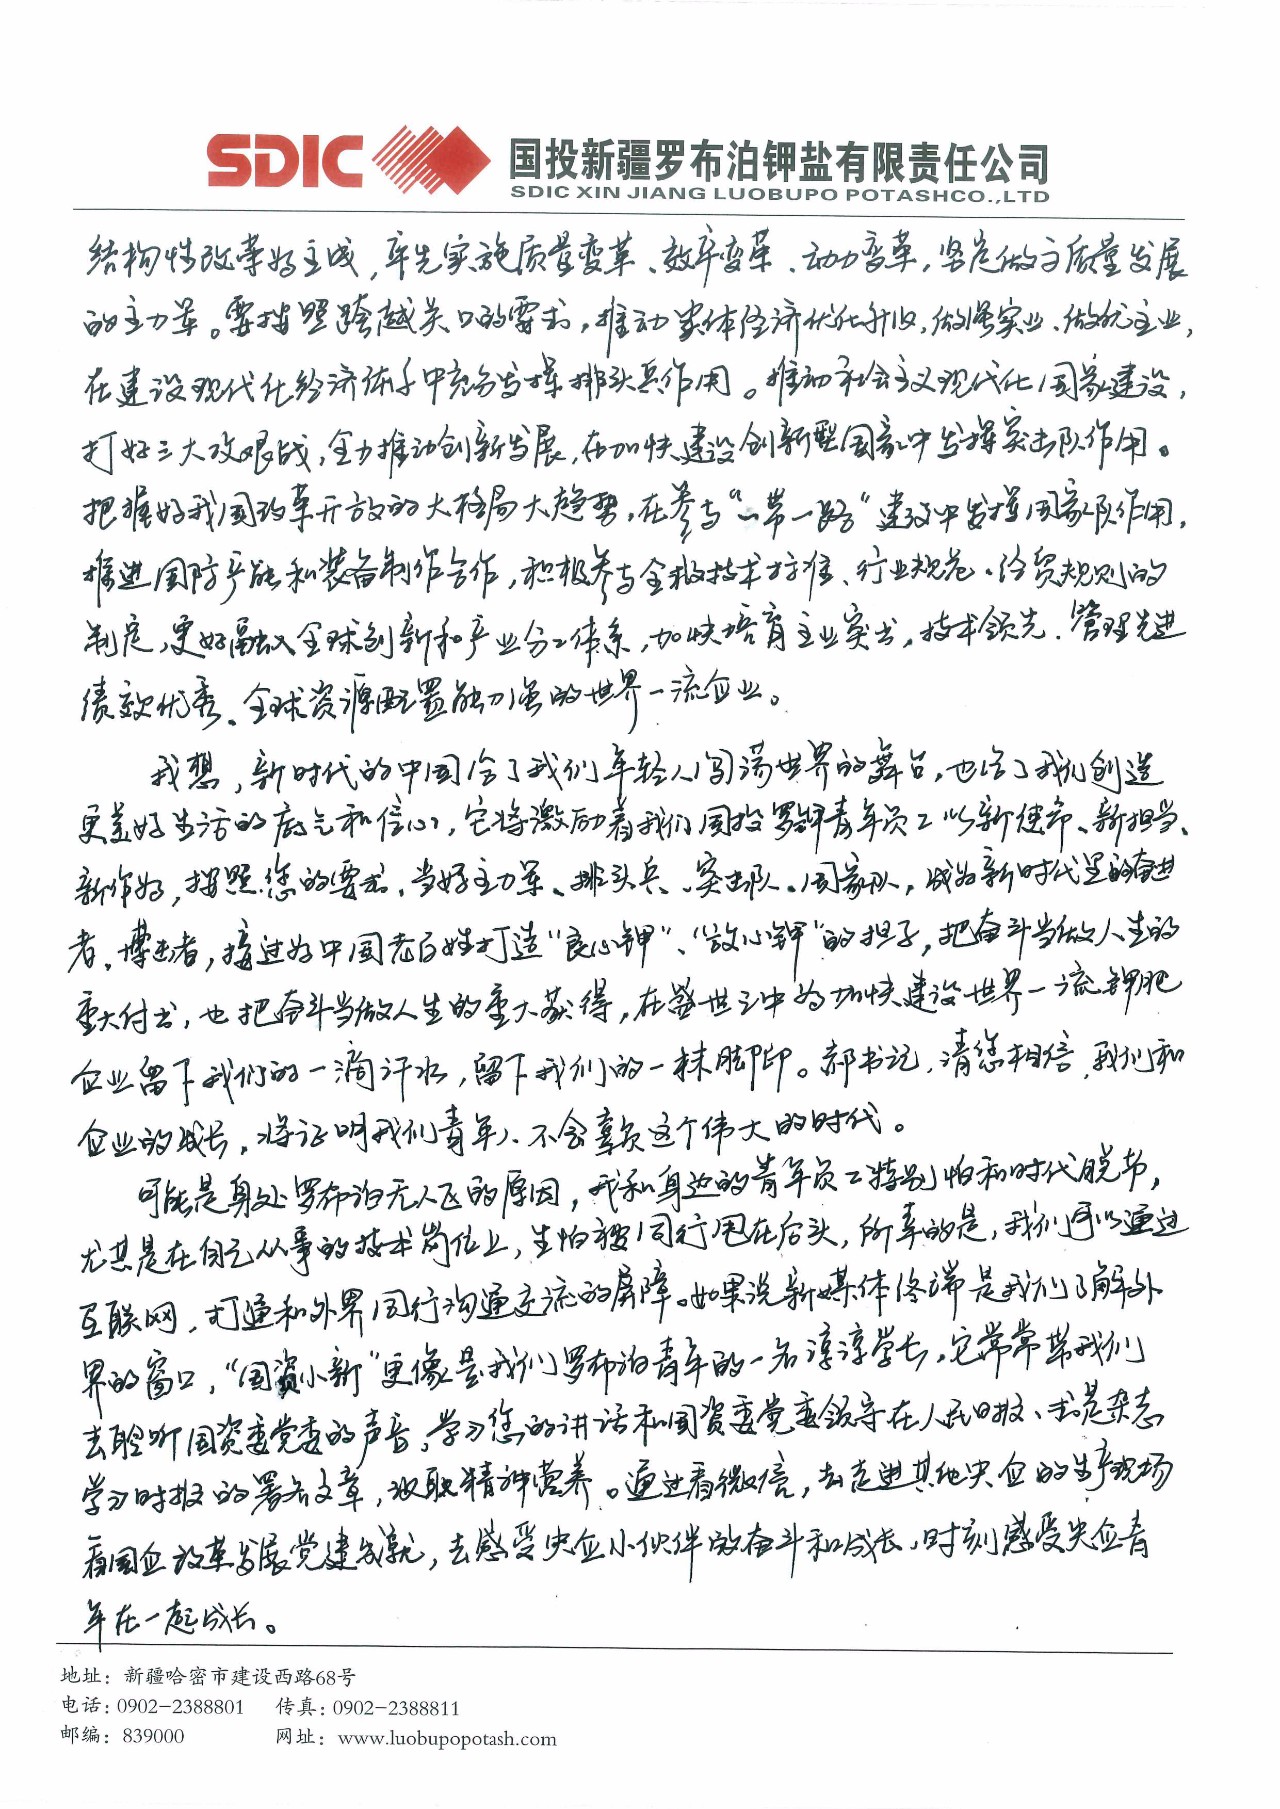 SDIC 国投新疆罗布泊钾盐有限责任公司
SDIC XIN JIANG LUOBUPO POTASHCO.,LTD
结构性改革为主线，率先实施质量变革、效率变革、动力变革，坚定做高质量发展
的主力军。要按照跨越关口的要求，推动实体经济优化升级，做强实业、做优主业，
在建设现代化经济体系中充分发挥排头兵作用。推动社会主义现代化国家建设，
打好三大攻坚战，全力推动创新发展，在加快建设创新型国家中发挥突击队作用。
把握好我国改革开放的大格局大趋势，在参与“一带一路”建设中发挥国家队作用，
推进国际产能和装备制作合作，积极参与全球技术标准、行业规范、经贸规则的
制定，更好融入全球创新和产业分工体系，加快培育主业突出，技术领先、管理先进
绩效优秀、全球资源配置能力强的世界一流企业。
我想，新时代的中国给了我们年轻人闯荡世界的舞台，也给了我们创造
更美好生活的底气和信心，它将激励着我们国投罗钾青年员工以新使命、新担当、
新作为，按照您的要求，当好主力军、排头兵、突击队、国家队，成为新时代里的奋进
者，搏击者，接过为中国老百姓打造“良心钾”、“放心钾”的担子，把奋斗当做人生的
重大付出，也把奋斗当做人生的重大获得，在盛世之中为加快建设世界一流钾肥
企业留下我们的一滴汗水，留下我们的一抹脚印。郝书记，请您相信，我们和
企业的成长，将证明我们青年人不会辜负这个伟大的时代。
可能是身处罗布泊无人区的原因，我和身边的青年员工特别怕和时代脱节，
尤其是在自己从事的技术岗位上，生怕被同行甩在后头，所幸的是，我们可以通过
互联网，打通和外界同行沟通交流的屏障。如果说新媒体终端是我们了解外
界的窗口，“国资小新”更像是我们罗布泊青年的一名淳淳学长，它常常带我们
去聆听国资委党委的声音，学习您的讲话和国资委党委领导在人民日报、求是杂志
学习时报的署名文章，汲取精神营养。通过看微信，去走进其他央企的生产现场
看国企改革发展党建成就，去感受央企小伙伴的奋斗和成长，时刻感受央企青
年在一起成长。
地址：新疆哈密市建设西路68号
电话：0902-2388801 传真：0902-2388811
邮编：839000 网址：www.luobupopotash.com